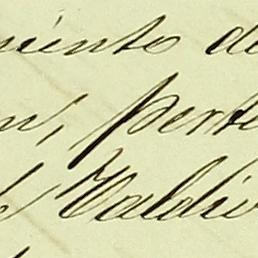 miento de
n, perte
Valdiv